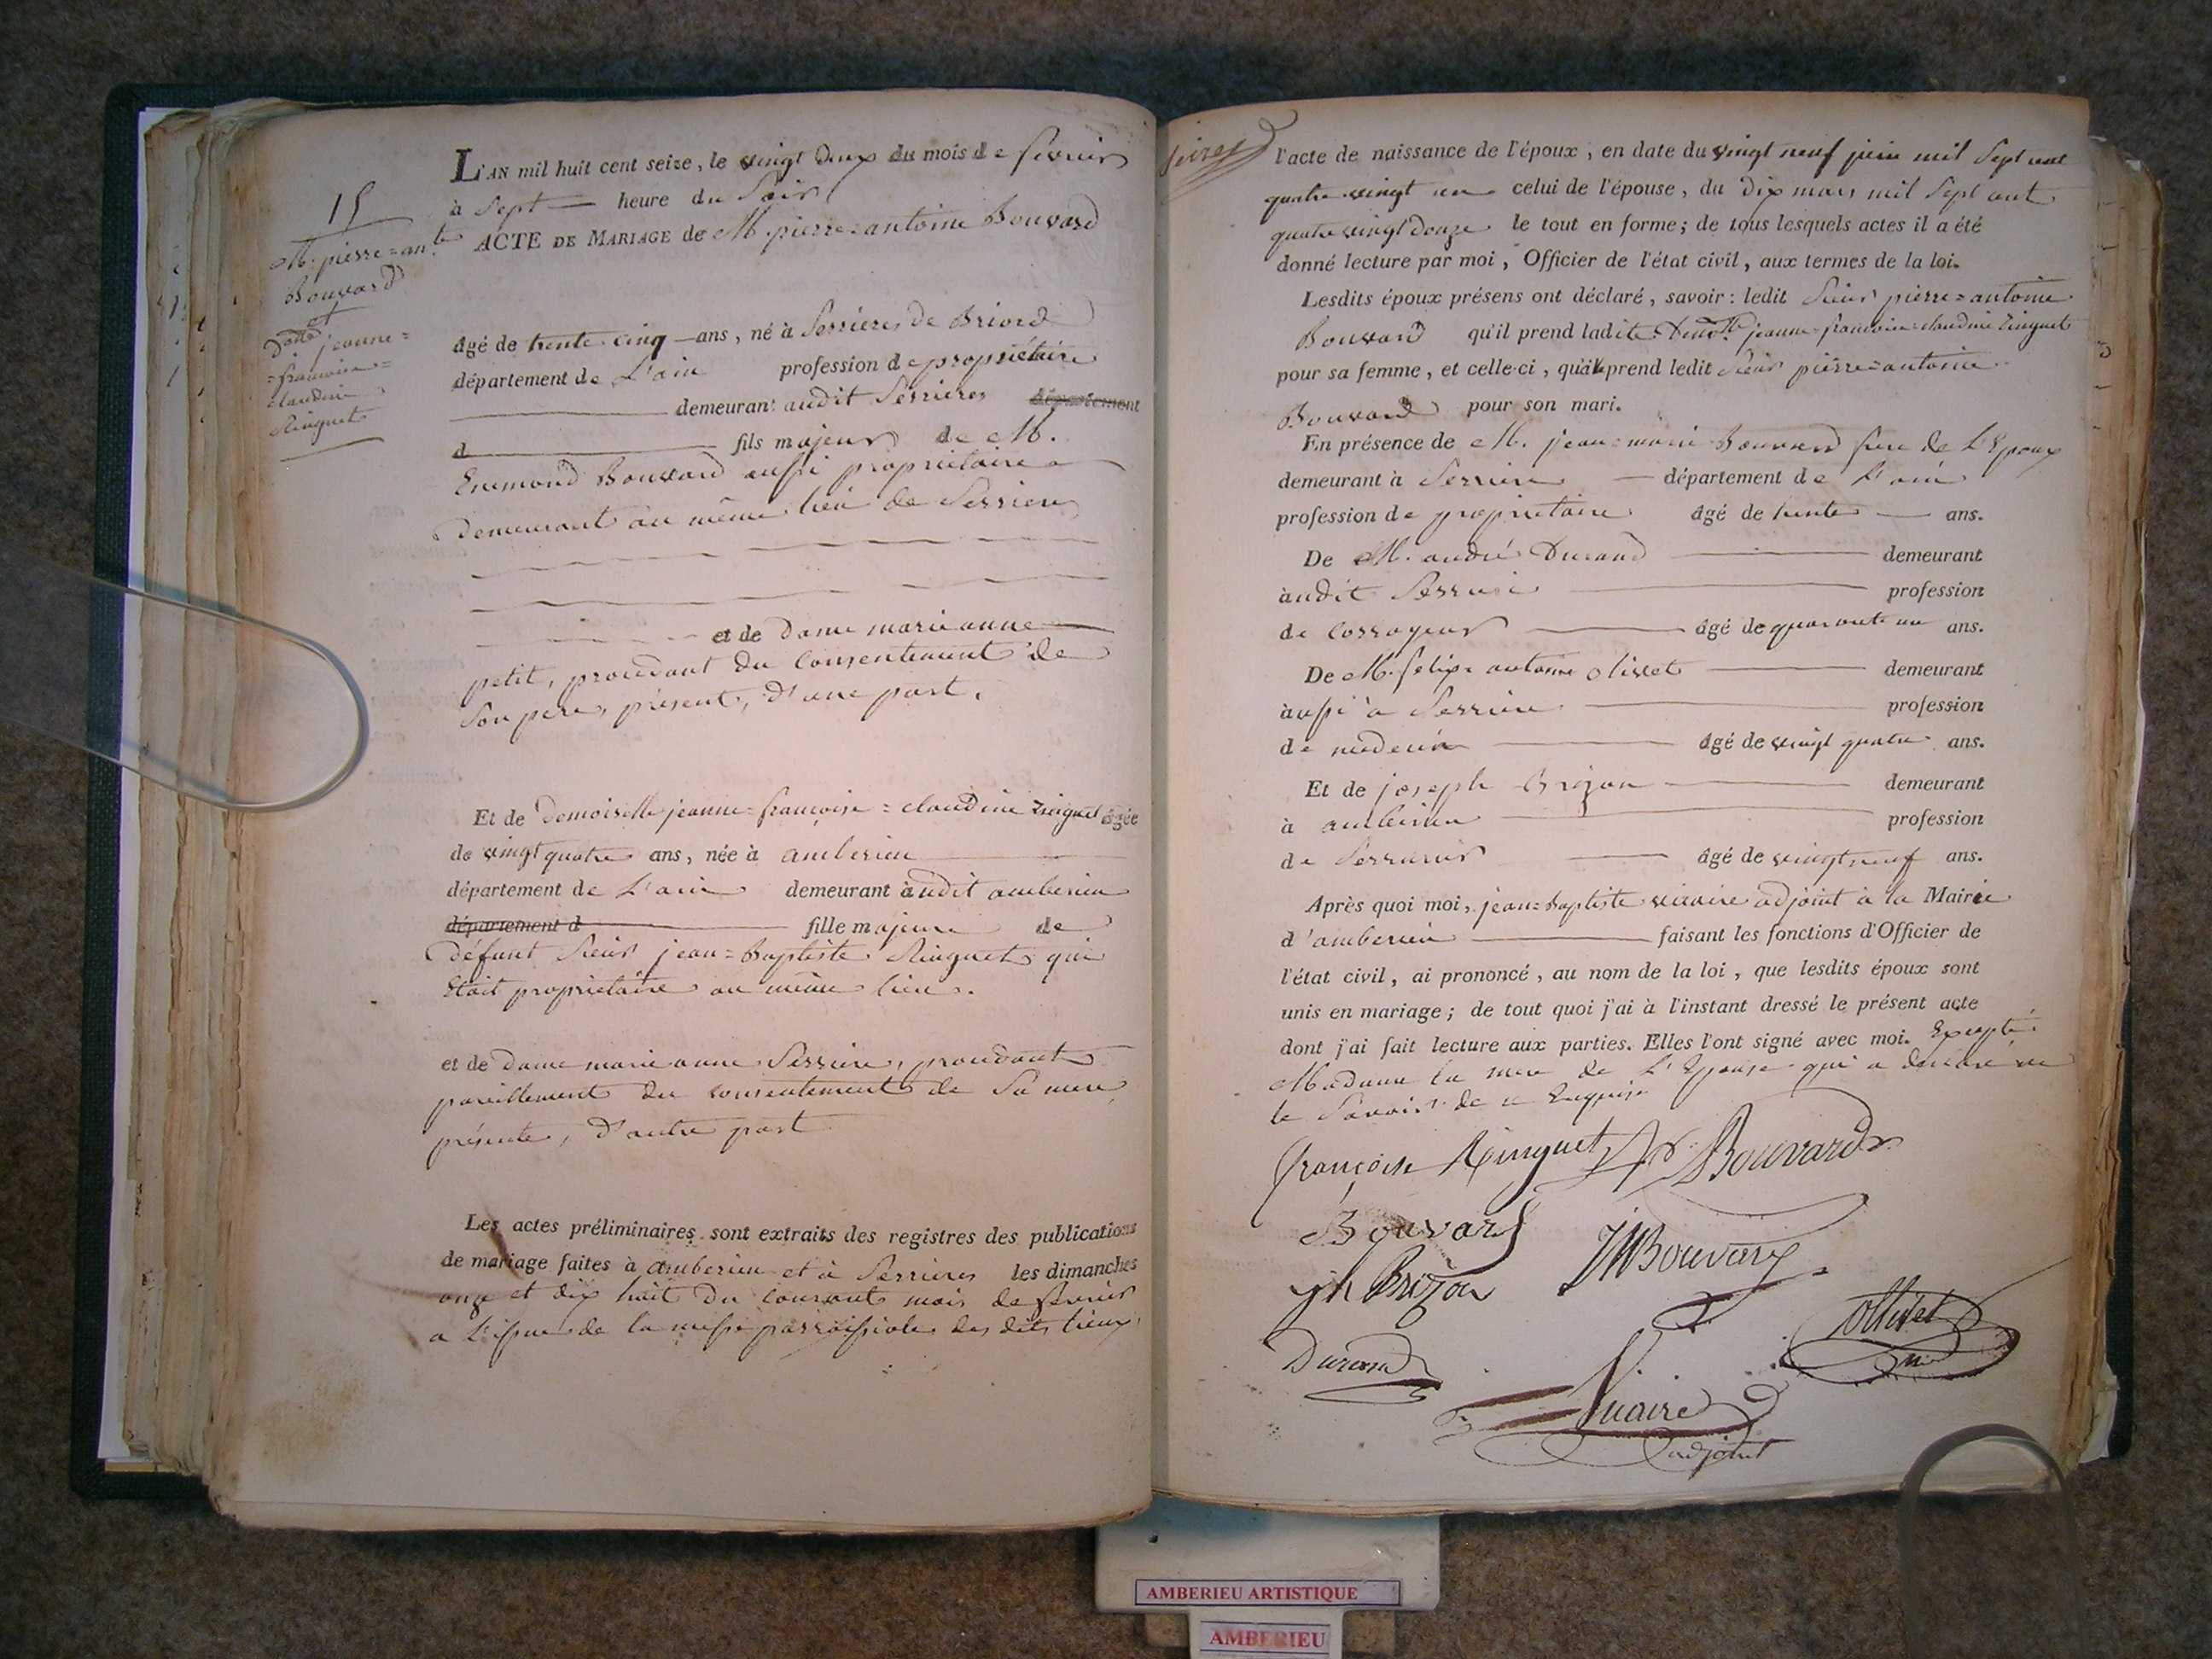 15
M. pierre=ant.e
Bouvard
et
Dlle jeanne=
=francoise=
claudine
Ringuet
L'AN mil huit cent seize, le vingt deux du mois de fevrier
à Sept heure du Soir
ACTE DE MARIAGE de M. pierre=antoine Bouvard
âgé de trente cinq ans, né à Serrieres de Briord
département de L'ain profession de propriétaire
demeurant audit Serrieres département
d fils majeur de M.
Enemond Bouvard aussi propriétaire
demeurant au même lieu de Serriere
et de Dame marie anne
petit, procédant du consentement de
Son pere, présent, d'une part.
Et de Demoiselle jeanne=françoise=claudine Ringuet âgée
de vingt quatre ans, née à amberieu
département de L'ain demeurant audit amberieu
département d fille majeure de
défunt Sieur jean=Baptiste Ringuet qui
était propriétaire au même lieu.
et de Dame marie anne Serriere, procédant
pareillement du consentement de Sa mere,
présente, d'autre part
Les actes préliminaires sont extraits des registres des publications
de mariage faites à amberieu et à Serrieres les dimanches
onze et dix huit du courant mois de fevrier
a L'issue de la messe parroissiale des dits lieux
l'acte de naissance de l'époux, en date du vingt neuf juin mil Sept cent
quatre vingt un celui de l'épouse, du dix mars mil Sept cent
quatre vingt douze le tout en forme; de tous lesquels actes il a été
donné lecture par moi, Officier de l'état civil, aux termes de la loi.
Lesdits époux présens ont déclaré, savoir: ledit Sieur pierre=antoine
Bouvard qu'il prend ladite Demlle jeanne-francoise-claudine Ringuet
pour sa femme, et celle-ci, qu'elle prend ledit Sieur pierre=antoine
Bouvard pour son mari.
En présence de M. jean=marie Bouvard frere de L'Epoux
demeurant à Serriere département de L'ain
profession de propriétaire âgé de trente ans.
De M. andré Durand demeurant
audit Serriere profession
de corroyeur âgé de quarante un ans.
De M. felix antoine Ollivet demeurant
aussi à Serriere profession
de médecin âgé de vingt quatre ans.
Et de joseph Brizon demeurant
à amberieu profession
de Serrurier âgé de vingt neuf ans.
Après quoi moi, jean=baptiste vicaire adjoint à la Mairie
d'amberieu faisant les fonctions d'Officier de
l'état civil, ai prononcé, au nom de la loi, que lesdits époux sont
unis en mariage; de tout quoi j'ai à l'instant dressé le présent acte
dont j'ai fait lecture aux parties. Elles l'ont signé avec moi. Excepté
Madame la mere de L'Epouse qui a déclaré ne
le Savoir de ce Enquise
françoise Ringuet Bouvard
Bouvard JMBouvard
jh Brizon
Ollivet
Durand
Vicaire
adjoint
AMBERIEU ARTISTIQUE
AMBERIEU